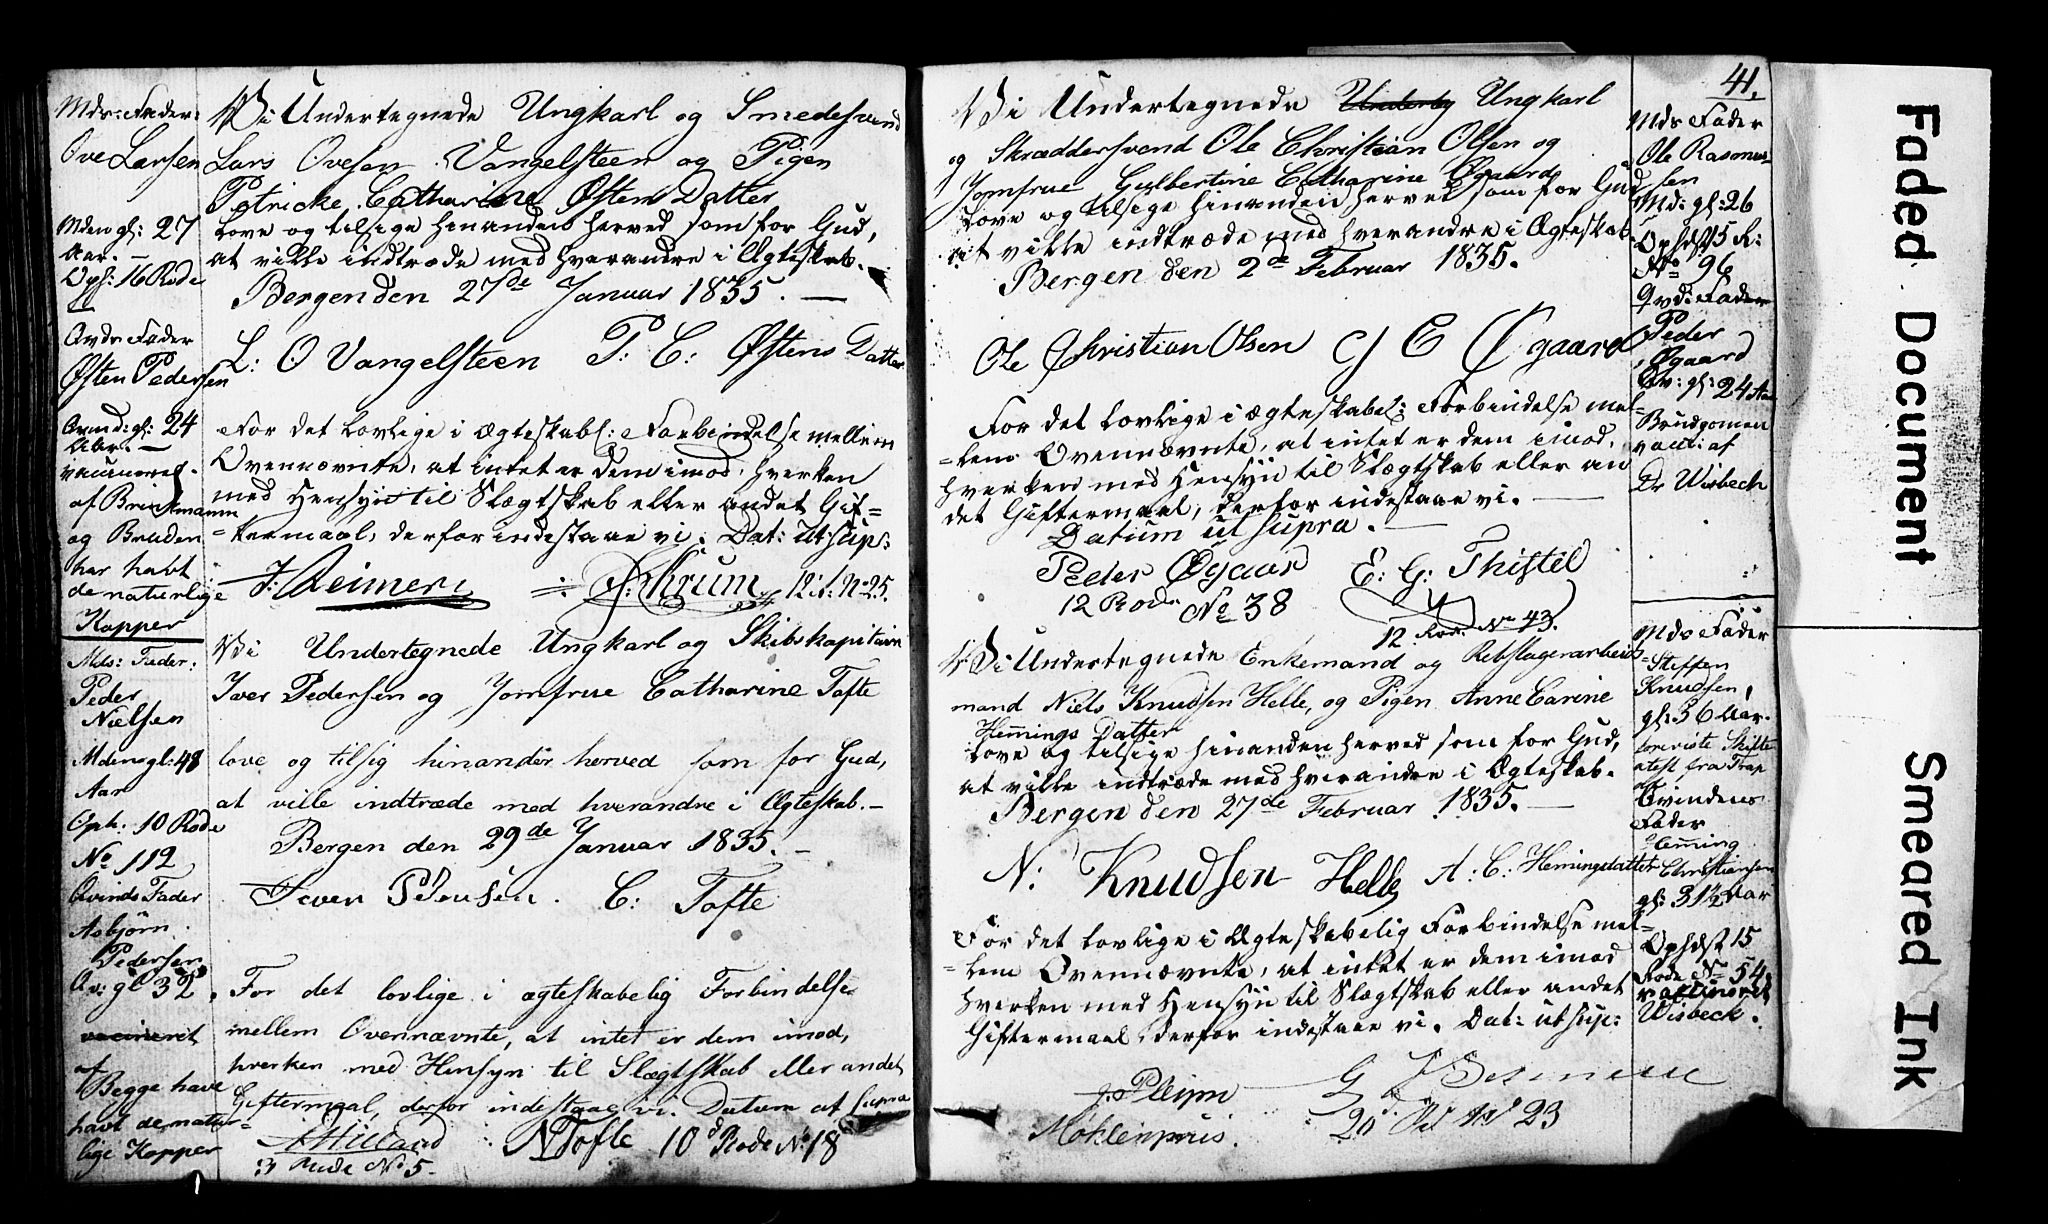 Mds: Fader:
Ove Larsen
Mden gl: 27
Aar. —
Oph: 16 Rode
Qvds Fader
Østen Pedersen
Qvind: gl: 24
Aar. —
vaccineret
af Brunkmann
og Bruden
har havt
de naturlige
Kopper
Wi Undertegnede Ungkarl og Smedesvend
Lars Ovesen Vangelsteen og Pigen
Petricke Catharine Østens Datter
Love og tilsige hinanden herved som for Gud,
at ville indtræde med hverandre i Ægteskab.
Bergen den 27de Januar 1835. —
L: O Vangelsteen P: C: Østens Datter
For det lovlige i ægteskabl: Forbindelse mellem
Ovennævnte, at intet er dem imod, hverken
med Hensyn til Slægtskab eller andet Gif=
=termaal, derfor indestaae vi. Dat: ut sup:
J: Reimers Krum 12 R. No 25.
Mds: Fader:
Peder
Nielsen
Mden gl: 48
Aar
Oph: 10 Rode
No 112
Qvinds Fader
Asbjørn
Pedersen
Qv: gl 32.
vacineret
af
Begge have
havt de natur=
lige Kopper
Wi Undertegnede Ungkarl og Skibskapitain
Iver Pedersen og Jomfrue Catharine Tofte
love og tilsig hinander herved som for Gud,
at ville indtræde med hverandre i Ægteskab. —
Bergen den 29de Januar 1835. —
Iver Pedersen. C: Tofte
For det lovlige i ægteskabelig Forbindelse
mellem Ovennævnte, at intet er dem imod,
hverken med Hensyn til Slægtskab eller andet
Giftermaal, derfor indestaae vi. Datum ut supra
NTofte 10d Rode No 18
3 Rode No 5.
41.
Wi Undertegnede Underteg Ungkarl
og Skræddersvend Ole Christian Olsen og
Jomfrue Gulbertine Catharine Øgaard
Love og tilsige hinanden herved som for Gud
at ville indtræde med hverandre i Ægteskab
Bergen den 2de Februar 1835.
Ole Christian Olsen G C Øgaard
For det lovlige i ægteskabel: Forbindelse mel=
=lem Ovennævnte, at intet er dem imod,
hverken med Hensyn til Slægtskab eller an
det Giftermaal, derfor indestaae vi. —
Datum ut supra. —
Peder Øgaard E: G: Thistel
12 Rode No 38
12 Rod: No 43.
Mds Fader
Ole Rasmus=
sen
Md: gl: 26
Ophdst 5 R:
No 96
Qvd: Fader
Peder
Øgaard
Qv: gl: 24 Aar
Brudgomen
vacc: af
Dr Wisbech
Wi Undertegnede Enkemand og Rebslagerarbeids
mand Niels Knudsen Helle, og Pigen Anne Carine
Hemings Datter
Love og tilsige hinanden herved som for Gud,
at ville indtræde med hverandre i Ægteskab.
Bergen den 27de Februar 1835. —
N: Knudsen Helle A: C: Hemingsdatter
For det lovlige i Ægteskabelig Forbindelse mel=
=lem Ovennævnte, at intet er dem imod
hverken med Hensyn til Slægtskab eller andet
Giftermaal, derfor indestaae vi. Dat: ut sup:
J. Pleym
Møhlenpriis.
20 Rd No 23
Mds Fader
Steffen
Knudsen,
gl: 36 Aar.
foreviste Skifte
atest fra
Qvindens
Fader
Heming
Christiansen
gl: 31½ Aar
Ophdst 15
Rode No 54.
vaccineret
Wisbeck.
Faded Document
Smeared Ink